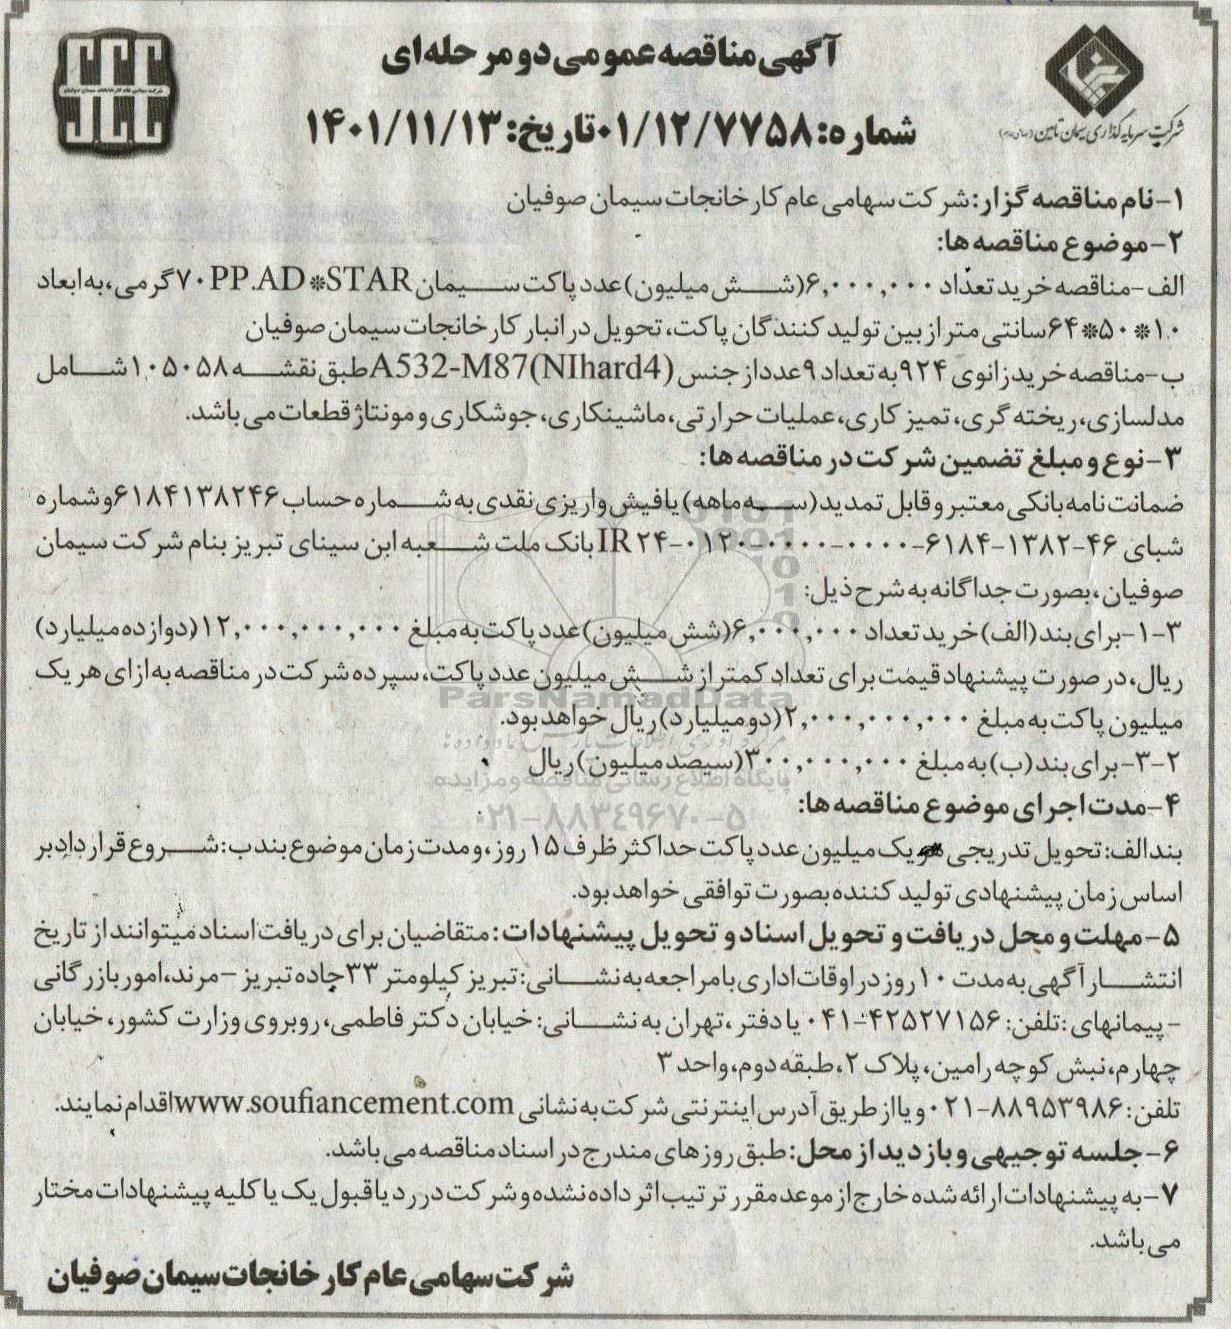 آگهی مناقصه عمومی دو مرحله‌ای
شماره: ۰۱/۱۲/۷۷۵۸ تاریخ: ۱۴۰۱/۱۱/۱۳
شرکت سرمایه گذاری سیمان تامین (سهامی عام)
شرکت سهامی عام کارخانجات سیمان صوفیان
۱- نام مناقصه گزار: شرکت سهامی عام کارخانجات سیمان صوفیان
۲- موضوع مناقصه ها:
الف- مناقصه خرید تعداد ۶,۰۰۰,۰۰۰ (شش میلیون) عدد پاکت سیمان PP.AD*STAR ۷۰ گرمی، به ابعاد
۱۰*۵۰*۶۴ سانتی متر از بین تولید کنندگان پاکت، تحویل در انبار کارخانجات سیمان صوفیان
ب- مناقصه خرید زانوی ۹۲۴ به تعداد ۹ عدد از جنس A532-M87(NIhard4) طبق نقشه ۱۰۵۰۵۸ شامل
مدلسازی، ریخته گری، تمیز کاری، عملیات حرارتی، ماشینکاری، جوشکاری و مونتاژ قطعات می باشد.
۳- نوع و مبلغ تضمین شرکت در مناقصه ها:
ضمانت نامه بانکی معتبر و قابل تمدید (سه ماهه) یا فیش واریزی نقدی به شماره حساب ۶۱۸۴۱۳۸۲۴۶ و شماره
شبای IR ۲۴-۰۱۲۰-۰۰۰۰-۰۰۰۰-۶۱۸۴-۱۳۸۲-۴۶ بانک ملت شعبه ابن سینای تبریز بنام شرکت سیمان
صوفیان، بصورت جداگانه به شرح ذیل:
۳-۱- برای بند (الف) خرید تعداد ۶,۰۰۰,۰۰۰ (شش میلیون) عدد پاکت به مبلغ ۱۲,۰۰۰,۰۰۰,۰۰۰ (دوازده میلیارد)
ریال، در صورت پیشنهاد قیمت برای تعداد کمتر از شش میلیون عدد پاکت، سپرده شرکت در مناقصه به ازای هر یک
میلیون پاکت به مبلغ ۲,۰۰۰,۰۰۰,۰۰۰ (دو میلیارد) ریال خواهد بود.
۳-۲- برای بند (ب) به مبلغ ۳۰۰,۰۰۰,۰۰۰ (سیصد میلیون) ریال
۴- مدت اجرای موضوع مناقصه ها:
بند الف: تحویل تدریجی هر یک میلیون عدد پاکت حداکثر ظرف ۱۵ روز، و مدت زمان موضوع بند ب: شروع قرارداد بر
اساس زمان پیشنهادی تولید کننده بصورت توافقی خواهد بود.
۵- مهلت و محل دریافت و تحویل اسناد و تحویل پیشنهادات: متقاضیان برای دریافت اسناد میتوانند از تاریخ
انتشار آگهی به مدت ۱۰ روز در اوقات اداری با مراجعه به نشانی: تبریز کیلومتر ۳۳ جاده تبریز - مرند، امور بازرگانی
- پیمانهای: تلفن: ۴۲۵۲۷۱۵۶-۰۴۱ یا دفتر، تهران به نشانی: خیابان دکتر فاطمی، روبروی وزارت کشور، خیابان
چهارم، نبش کوچه رامین، پلاک ۲، طبقه دوم، واحد ۳
تلفن: ۸۸۹۵۳۹۸۶-۰۲۱ و یا از طریق آدرس اینترنتی شرکت به نشانی www.soufiancement.com اقدام نمایند.
۶- جلسه توجیهی و بازدید از محل: طبق روزهای مندرج در اسناد مناقصه می باشد.
۷- به پیشنهادات ارائه شده خارج از موعد مقرر ترتیب اثر داده نشده و شرکت در رد یا قبول یک یا کلیه پیشنهادات مختار
می باشد.
شرکت سهامی عام کارخانجات سیمان صوفیان
ParsNamadData
پایگاه اطلاع رسانی مناقصه و مزایده
۰۲۱-۸۸۳۴۹۶۷۰-۵